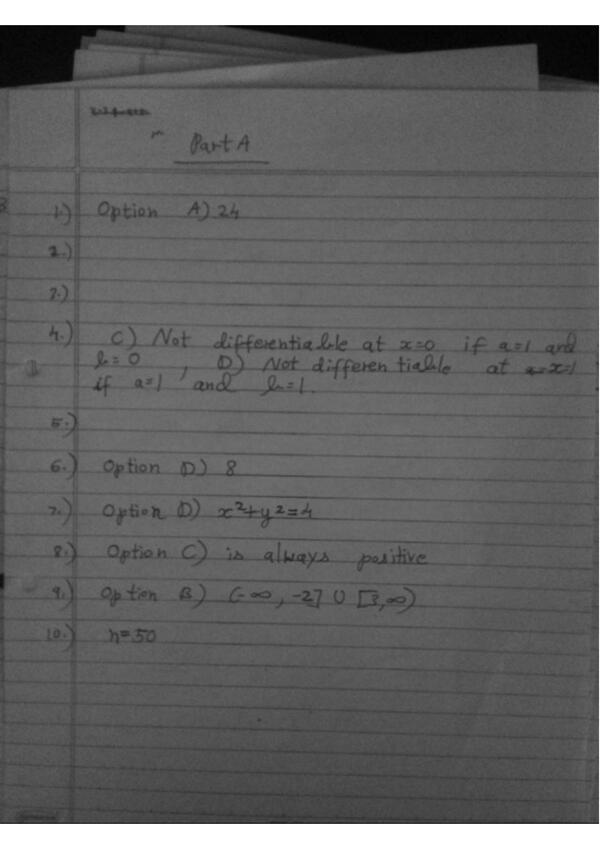 Part A
1.) Option A) 24
2.)
3.)
4.) C) Not differentiable at x=0 if a=1 and
b=0 , D) Not differentiable at x=1
if a=1 and b=1.
5.)
6.) Option D) 8
7.) Option D) x²+y²=4
8.) Option C) is always positive
9.) Option B) (-∞, -2] ∪ [3,∞)
10.) n=50